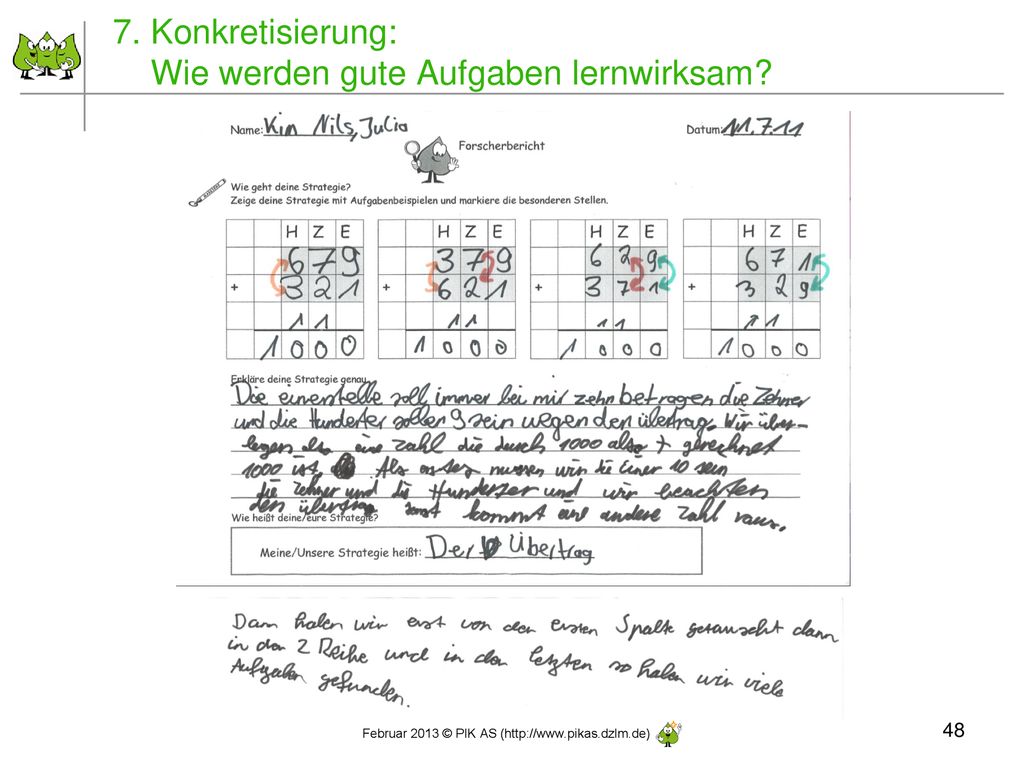 7. Konkretisierung:
Wie werden gute Aufgaben lernwirksam?
Name: Kim Nils, Julia Datum: 11.7.11
Forscherbericht
Wie geht deine Strategie?
Zeige deine Strategie mit Aufgabenbeispielen und markiere die besonderen Stellen.
H Z E H Z E H Z E H Z E
6 7 9 3 7 9 6 2 9 6 7 1
+ 3 2 1 + 6 2 1 + 3 7 1 + 3 2 9
1 1 1 1 1 1 1 1
1 0 0 0 1 0 0 0 1 0 0 0 1 0 0 0
Erkläre deine Strategie genau.
Die einerstelle soll immer bei mir zehn betragen die Zehner
und die Hunderter sollen 9 sein wegen den übertrag. Wir über-
legen also eine Zahl die durch 1000 also + gerechnet
1000 ist. Als erstes müssen wir die Einer 10 sein
die Zehner und die Hunderter und wir beachten
den übertrag sonst kommt eine andere Zahl raus.
Wie heißt deine/eure Strategie?
Meine/Unsere Strategie heißt: Der Übertrag
Dann haben wir erst von der ersten Spalte getauscht dann
in der 2 Reihe und in der letzten so haben wir viele
Aufgaben gefunden.
Februar 2013 © PIK AS (http://www.pikas.dzlm.de)
48